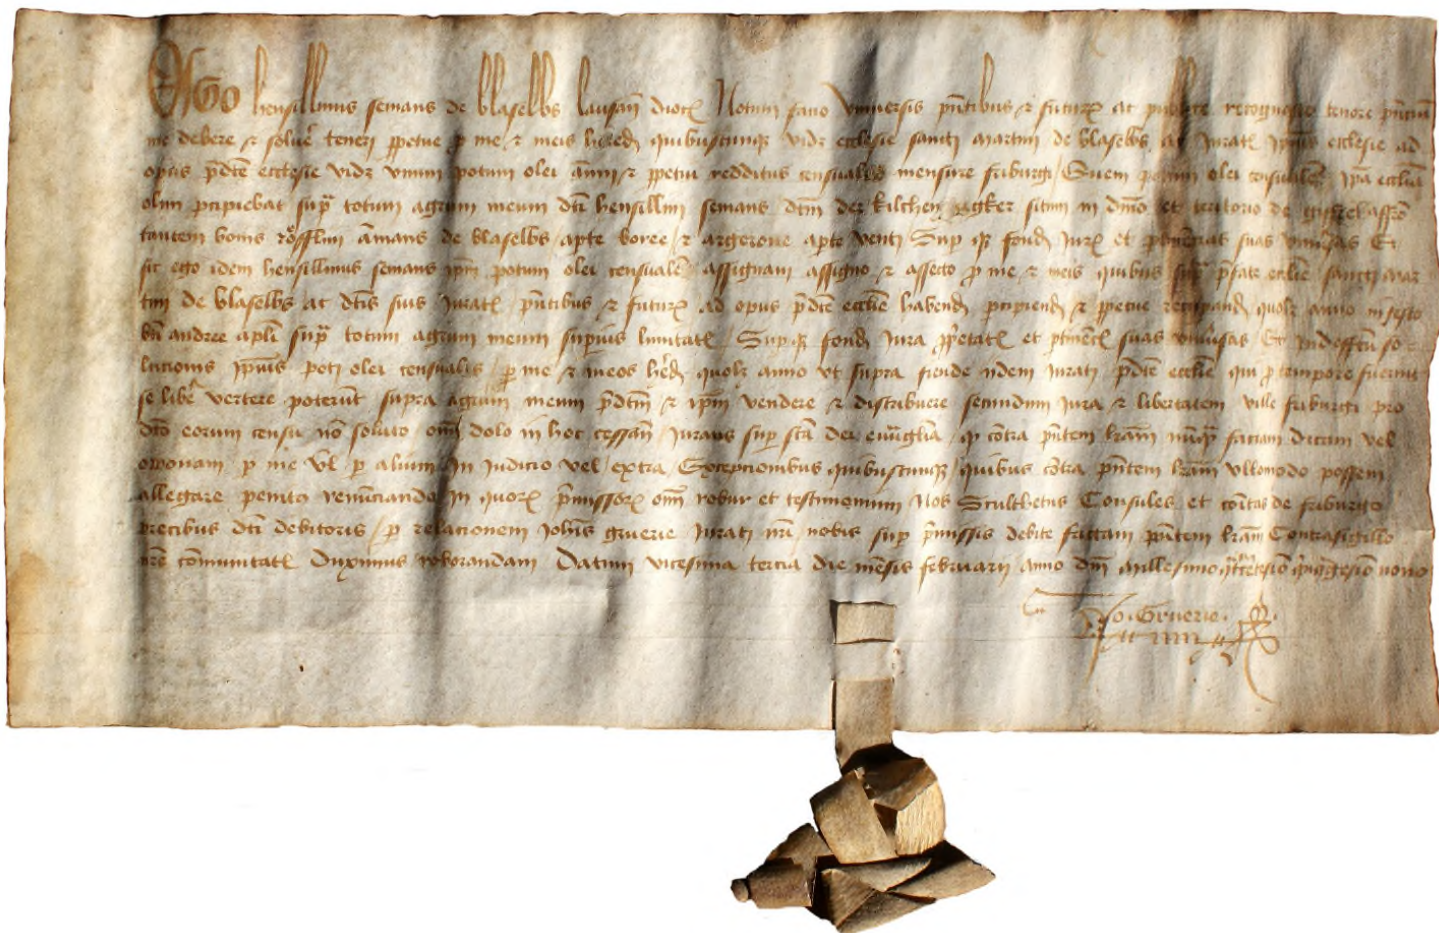 Ego hensillinus semans de blaselbs lausañ dioc̄ Notum facio vniuersis pn̄tibus & futur̄ ac publice recognosco tenore pn̄cium
me debere & soluer̄ teneri ꝑpetue ꝑ me & meis hered̄ quibuscunqꝫ vidꝫ ecclesie sancti martini de blaselbs ac Jurat̄ ipīus ecclesie ad
opus p̄dc̄te ecclesie vidꝫ vnum potum olei ānui & ꝑpetui redditus censualis mensure friburgi / Quem potum olei censualem ip̄a ecclīa
olim ꝑcipiebat sup̄ totum agrum meum dc̄ti hensillini semans dc̄m der kilchen agker situm in dn̄io et teritorio de
bonis röfflini āmans de blaselbs / aꝑte boree / & aꝑte venti / Sup qꝫ fond̄ Jur̄ et ꝑtinencias suas vniuersas Et
sic ego idem hensillinus semans ip̄m potum olei censualem assignaui assigno & assetto ꝑ me & meis quibus sup̄ p̄fate ecclīe sancti mar
tini de blaselbs ac dc̄tis suis Jurat̄ pn̄tibus & futur̄ ad opus p̄dc̄te ecclīe habend̄ ꝑcipiend̄ & ꝑpetue recuperand̄ quolꝫ anno in festo
bt̄i andree apl̄i sup̄ totum agrum meum superius limitat̄ / Sup qꝫ fond̄ Jura ꝓprietat̄ et ꝑtinēc̄ suas vniūsas / Et in deffectu so
lucionis ipīus poti olei censualis / ꝑ me & meos hēd̄ quolꝫ anno vt supra fiende iidem Jurati p̄dc̄te ecclīe qui ꝓ tempore fuerint
se libē vertere poterūt supra agrum meum p̄dc̄tm & ip̄m vendere & distribuere secundum Jura & libertatem ville friburgi pro
dc̄to eorum censu nō soluto om̄i dolo in hoc cessan̄ / Jurans suꝑ sc̄ta dei euāglīa / qꝫ cōtra pn̄tem lr̄am nūqꝫ faciam dicam vel
opponam ꝑ me vl̄ ꝑ alium In Judicio vel / extra Excepcionibus quibuscunqꝫ / quibus cōtra pn̄tem lr̄am vllomodo possem
allegare penitꝰ renūciando In quor̄ p̄missor̄ om̄i robur et testimonium Nos Sculthetus Consules et cōitas de friburgo
precibus dc̄ti debitoris / ꝑ relacionem Joh̄is gruerie Jurati nr̄i nobis suꝑ p̄missis debite factam pn̄tem lr̄am Contrasigillo
nr̄e cōmunitat̄ Duximus roborandam Datum vicesima tercia die mēsis februarii anno dn̄i millesimo qͣdͥngētesimo qͥnqͣgesimo nono
Jo · Gruerie ·